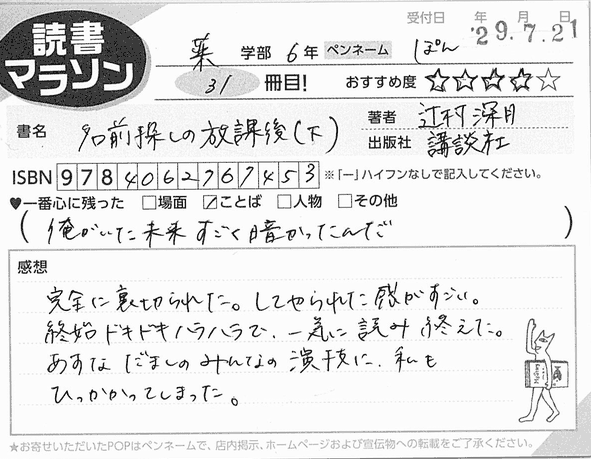 読書
マラソン
受付日 年 月 日
'29.7.21
薬 学部 6年 ペンネーム しぽん
31 冊目! おすすめ度 ★★★★☆
書名 名前探しの放課後(下)
著者 辻村深月
出版社 講談社
ISBN 9784062767453 ※「ー」ハイフンなしで記入してください。
♥一番心に残った □場面 ☑ことば □人物 □その他
(俺がいた未来 すごく暗かったんだ)
感想
完全に裏切られた。してやられた感がすごい。
終始ドキドキハラハラで、一気に読み終えた。
あすなだましのみんなの演技に、私も
ひっかかってしまった。
★お寄せいただいたPOPはペンネームで、店内掲示、ホームページおよび宣伝物への転載をご了承ください。